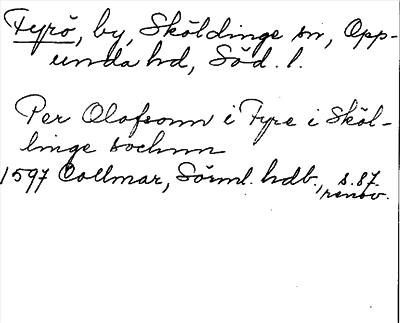 Fyrö, by, Sköldinge sn, Opp-
unda hd, Söd. l.
Per Olofsonn i Fyre i Sköl-
linge sochnn
1597 Collmar, Sörml. hdb., s. 87.
renov.